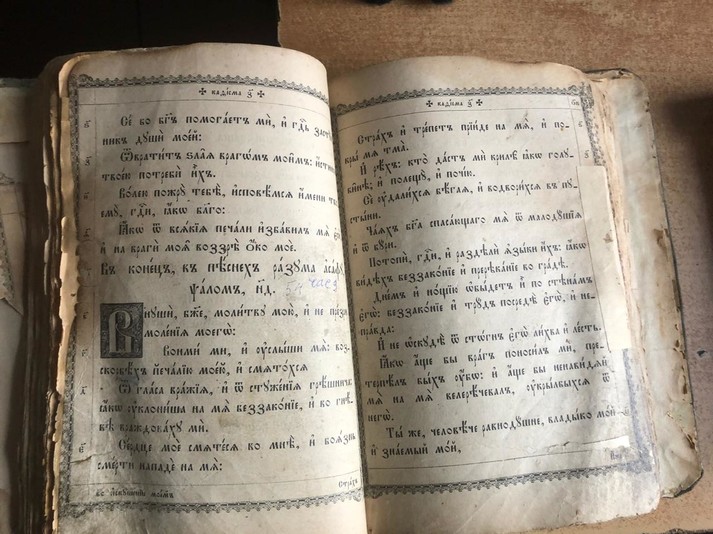 ✠ каѳі́сма з҃ ✠
Се́ бо бг҃ъ помога́етъ мѝ, и҆ гдⷭ҇ь засту́п-
никъ дꙋшѝ мое́й:
Ѿврати́тъ ѕла̑ѧ врагѡ́мъ мои̑мъ: и҆́стиною
твое́ю потребѝ и҆̀хъ.
Во́лею пожрꙋ̀ тебѣ̀, и҆сповѣ́мсѧ и҆́мени тво-
емꙋ̀, гдⷭ҇и, ꙗ҆́кѡ бл҃го:
Ꙗ҆́кѡ ѿ всѧ́кїѧ печа́ли и҆зба́вилъ мѧ̀ є҆сѝ
и҆ на врагѝ моѧ̑ воззрѣ̀ ѻ҆́ко моѐ.
Въ коне́цъ, въ пѣ́снехъ ра́зꙋма а҆са́фꙋ,
ѱало́мъ, н҃д.
Внꙋшѝ, бж҃е, моли́твꙋ мою̀, и҆ не пре́зри
моле́нїѧ моегѡ̀:
Вонмѝ мѝ, и҆ ᲂу҆слы́ши мѧ̀: воз-
скорбѣ́хъ печа́лїю мое́ю, и҆ смѧто́хсѧ
Ѿ гла́са вра́жїѧ, и҆ ѿ стꙋже́нїѧ грѣ́шнича:
ꙗ҆́кѡ ᲂу҆клони́ша на мѧ̀ беззако́нїе, и҆ во гнѣ́-
вѣ враждова́хꙋ мѝ.
Се́рдце моѐ смѧте́сѧ во мнѣ̀, и҆ боѧ́знь
сме́рти нападѐ на мѧ̀:
Стра́хъ
✠ каѳі́сма з҃ ✠
Стра́хъ и҆ тре́петъ прїи́де на мѧ̀, и҆ по-
кры́ мѧ тма̀.
И҆ рѣ́хъ: кто̀ да́стъ мѝ крилѣ̀ ꙗ҆́кѡ голꙋ-
би́нѣ; и҆ полещꙋ̀, и҆ почі́ю.
Сѐ ᲂу҆дали́хсѧ бѣ́гаѧ, и҆ водвори́хсѧ въ пꙋ-
сты́ни.
Ча́ѧхъ бг҃а спаса́ющаго мѧ̀ ѿ малодꙋ́шїѧ
и҆ ѿ бꙋ́ри.
Потопѝ, гдⷭ҇и, и҆ раздѣлѝ ѧ҆зы́ки и҆́хъ: ꙗ҆́кѡ
ви́дѣхъ беззако́нїе и҆ прерѣка́нїе во гра́дѣ.
Дне́мъ и҆ но́щїю ѡ҆бы́детъ и҆̀ по стѣна́мъ
є҆гѡ̀: беззако́нїе и҆ трꙋ́дъ посредѣ̀ є҆гѡ̀, и҆ не-
пра́вда:
И҆ не ѡ҆скꙋдѣ̀ ѿ сто́гнъ є҆гѡ̀ ли́хва и҆ ле́сть.
Ꙗ҆́кѡ а҆́ще бы вра́гъ поноси́лъ мѝ, пре-
терпѣ́лъ бы́хъ ᲂу҆́бѡ: и҆ а҆́ще бы ненави́дѧй
мѧ̀ на мѧ̀ велерѣ́чевалъ, ᲂу҆кры́лбыхсѧ ѿ
негѡ̀.
Ты́ же, человѣ́че равнодꙋ́шне, влады́ко мо́й
и҆ зна́емый мо́й,